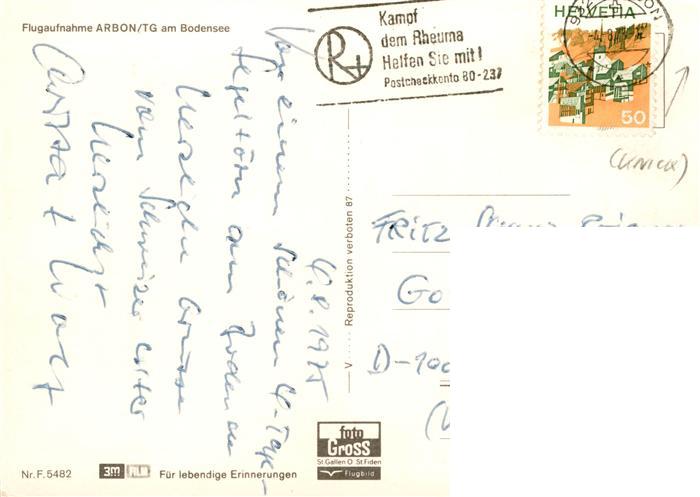 Flugaufnahme ARBON/TG am Bodensee
Kampf
dem Rheuma
Helfen Sie mit!
Postcheckkonto 80-237
R+
HELVETIA
50
4.8.1975
Von einem schönen 4-Tage-
Segeltörn am Bodensee
herzliche Grüsse
vom Schweizer
Herzlichst
FRITZ
Go
D-100
V ..... Reproduktion verboten 87 .....
foto
Gross
St.Gallen O St.Fiden
Flugbild
Nr. F. 5482
3m FILM
Für lebendige Erinnerungen